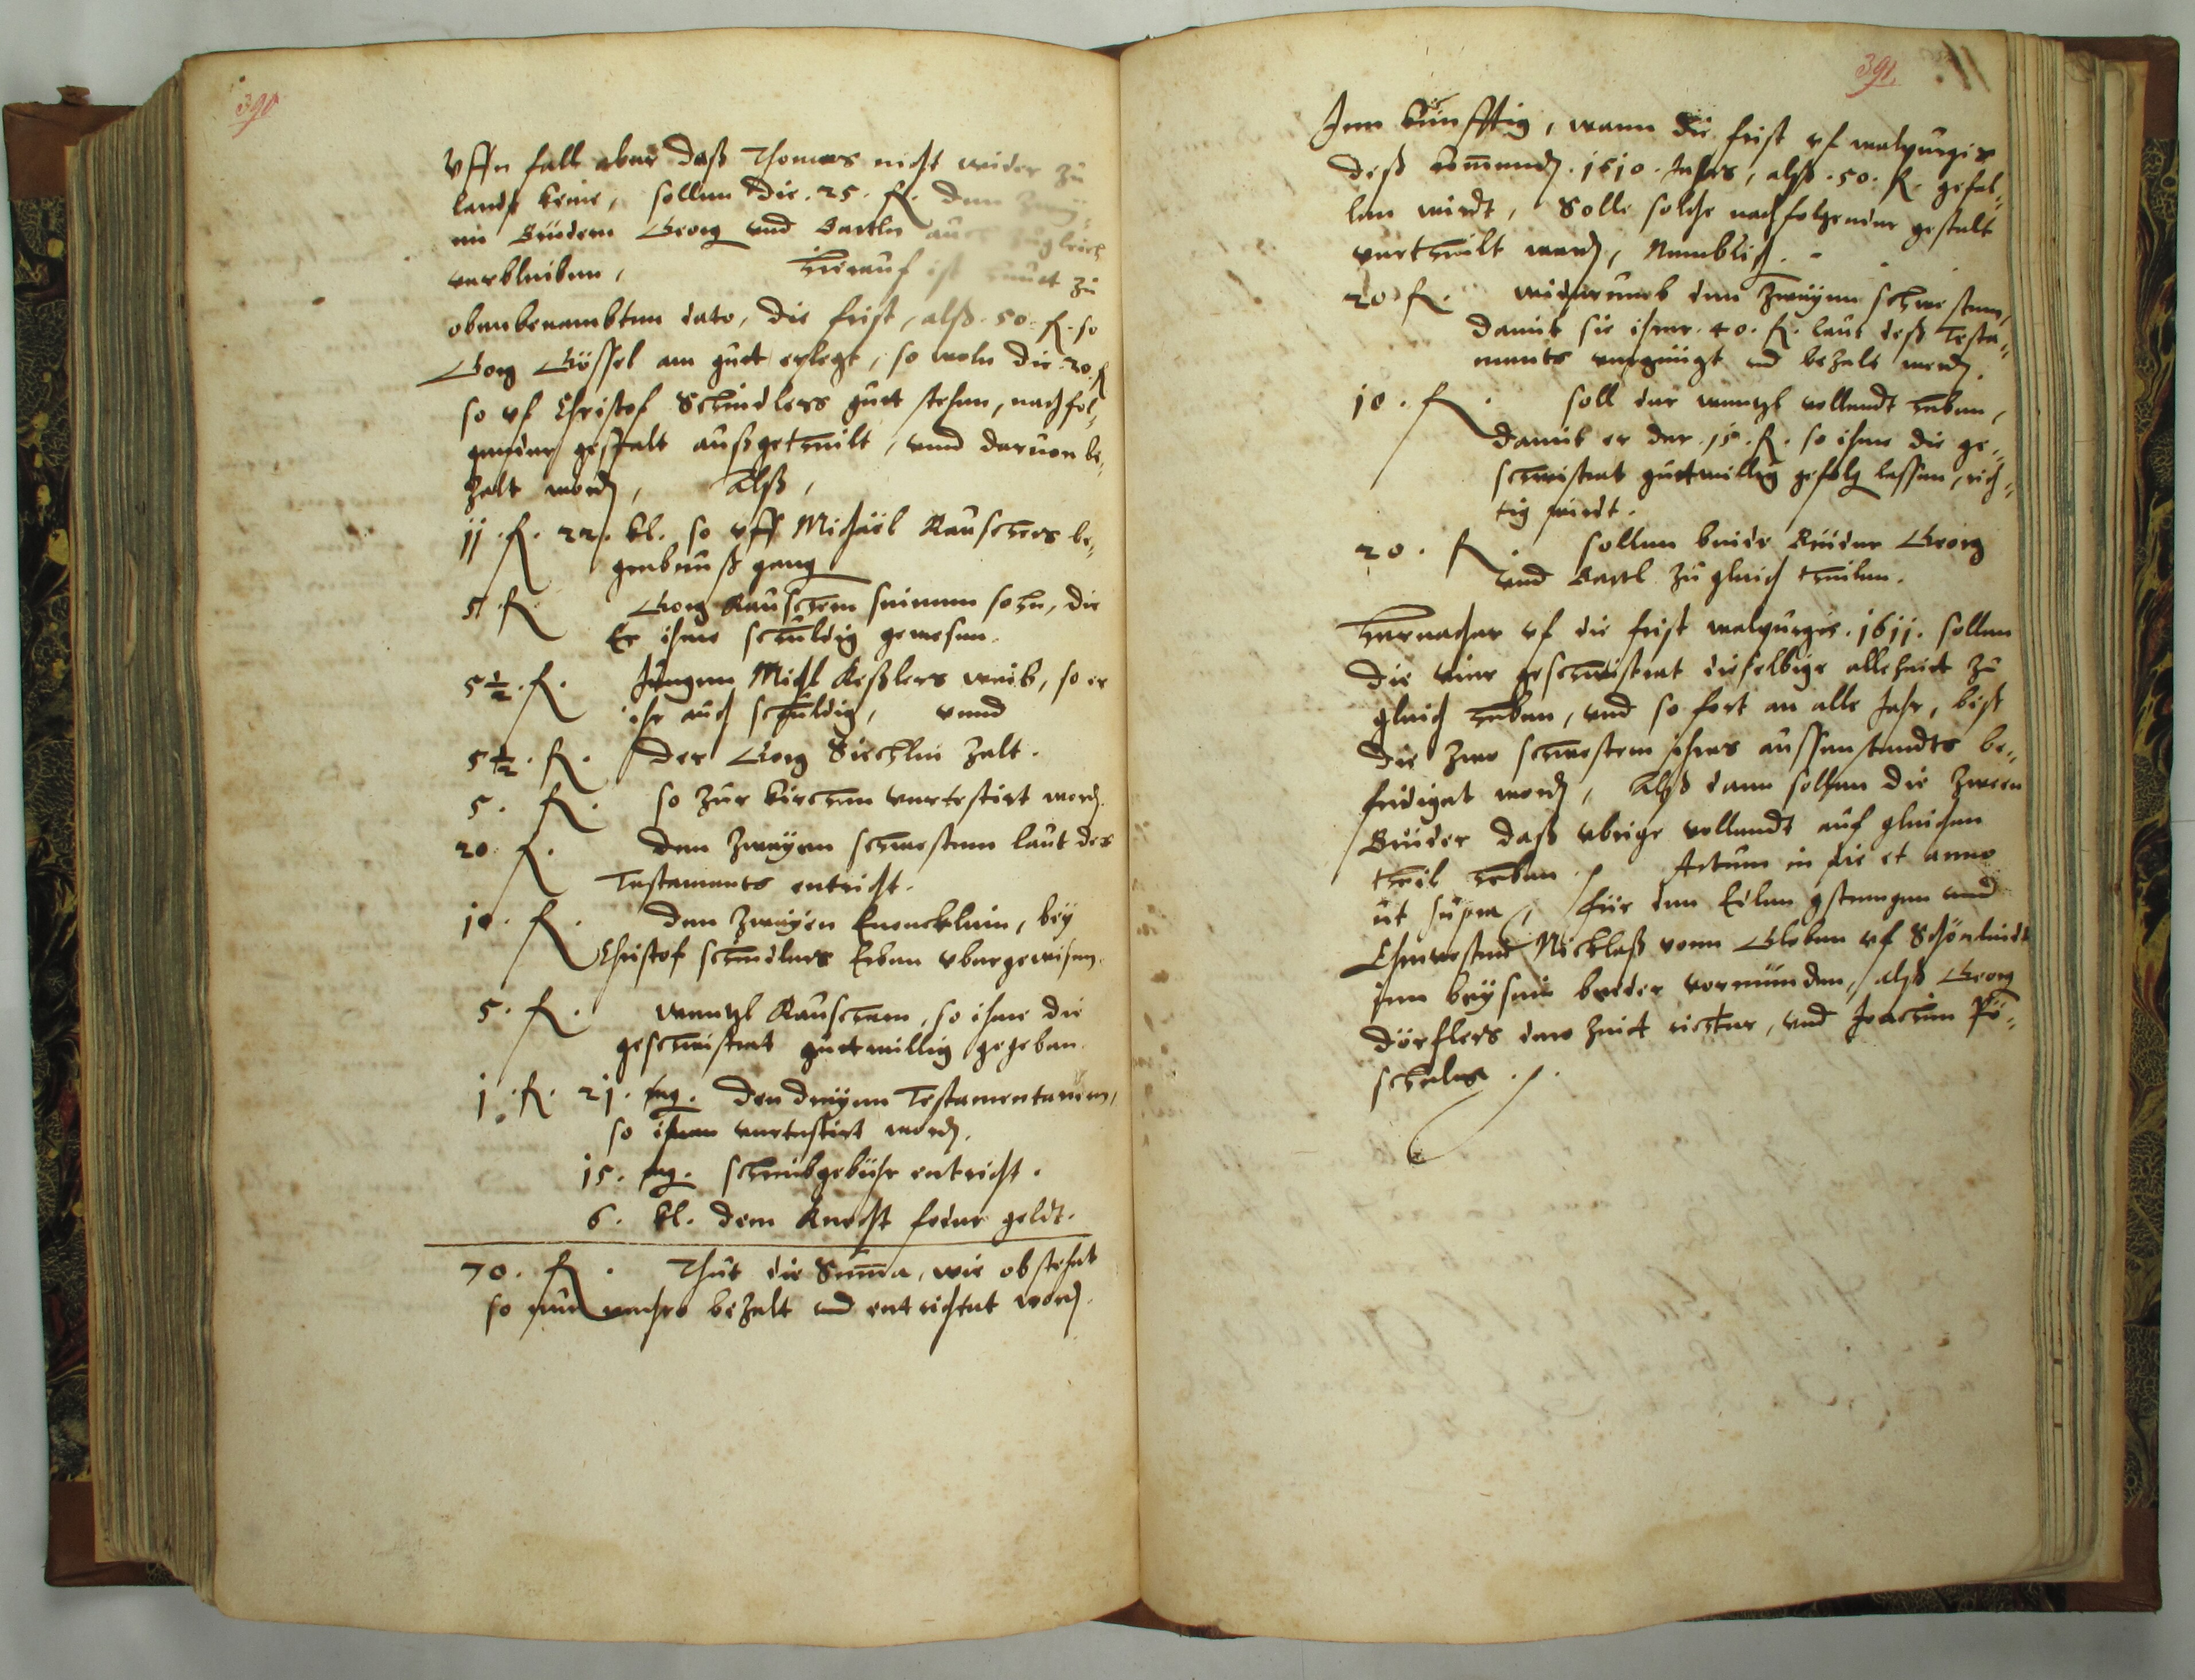 390
Vffn fall aber daß Thomas nicht wider zu
landt keme, sollen die .25. fl. den zwey„
en Brüdern Georg vnd Bartln auch zugleich
verbleiben, Hierauf ist heut zu
obenbenambten dato, die frist, alß .50. fl. so
Georg Gössel am guet erlegt, so woln die .20. fl
so vf Christof Schindlers guet stehen, nachfol„
gender gestalt außgetheilt, vnnd daruon be„
zalt word, Alß,
11. fl. 22. kl. so vff Michäel Rauschers be„
grebnuß gang
5 fl. Georg Rauschern seinem sohn, die
Er ihme schuldig gewesen.
5½. fl. Jungen Michl Keßlers weib, so er
ihr auch schuldig, vnnd
5½. fl. der Georg Siechlin zalt.
5. fl. so zur kirchen vertestirt word.
20 fl. den zweyen schwestern laut des
Testaments entricht.
10. fl. den zweyen Enencklein, bey
Christof schindlers Erben vbergewisen.
5. fl. wenzl Rauschern, so ihme die
geschwistret guetwillig gegeben.
1. fl. 21. mg. den dreyen Testamentarien,
so ihnen vertestirt word.
15. mg. schreibgebühr entricht.
6. kl. dem Knecht feder geldt.
70. fl. Thut die Suma, wie obstehet
so nun mehro bezalt vnd entrichtet word.
391.
Inn künfftig, wann die frist vf walpurgis
deß komend .1610. Jahrs, alß .50. fl. gefal„
len wirdt, Solle solche nachfolgender gestalt
vertheilt werd, Nemblich.
20 fl. widerumb den zweyen schwestern,
damit sie ihrer .40. fl. laut deß Testa„
ments vergnügt vnd bezalt werd.
10. fl. soll der wenzl vollendt haben,
damit er der .15. fl. so ihme die ge„
schwistret guetwillig gefolg lassen, rich„
tig wirdt.
20. fl. sollen beide Brüder Georg
vnd Bartl zu gleich theilen.
Hernacher vf die frist walpurgis .1611. sollen
die vier geschwistret dieselbige allezeit zu
gleich heben, vnd so fort an alle Jahr, biß
die zwo schwestern ihres aussenstandts be„
fridiget word, Alß dann sollen die zween
Brüder daß vbrige vollendt auf gleichen
theil heben. Actum in die et anno
ut supra, für den Edlen gstrengen vnd
Ehrnvesten Nicklaß vonn Globen vf Schönlindt
inn beysein beeder vormünden, alß Georg
Dörfflers der zeit richter, vnd Joachim Pö„
schels.